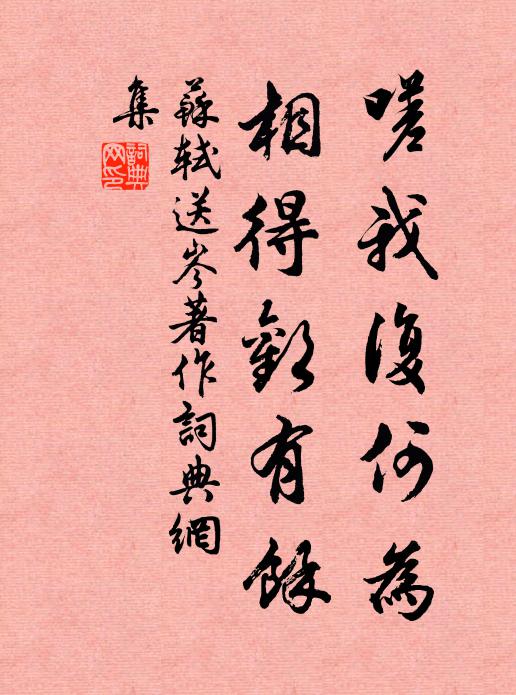 嗟我復何為
相得歡有餘
蘇軾送岑著作詞典網
集
詞典
網印